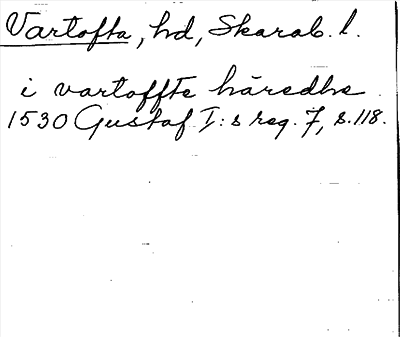 Vartofta, hd, Skarab. l.
i vartoffte häredhe
1530 Gustaf I:s reg. 7, s. 118.